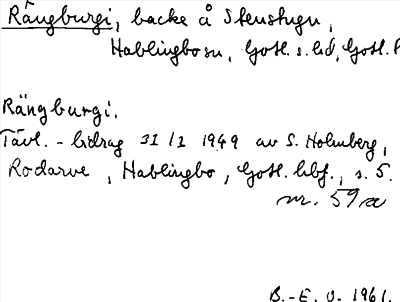 Rängburgi, backe å Stenstugu,
Hablingbo sn, Gotl. s. hd, Gotl. l
Rängburgi.
Tävl.-bidrag 31/1 1949 av S. Holmberg,
Rodarve, Hablingbo, Gotl. , s. 5.
nr. 59a
B.-E. O. 1961.